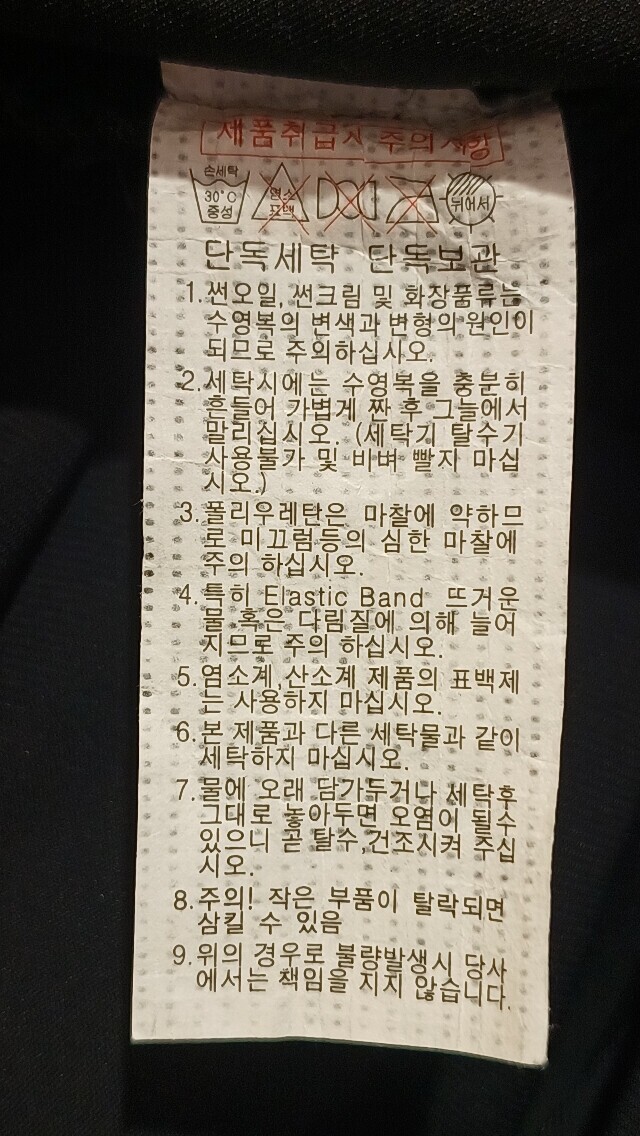 제품취급시 주의사항
손세탁
30°C
중성
염소
표백
뉘어서
단독세탁 단독보관
1.썬오일, 썬크림 및 화장품류는
수영복의 변색과 변형의 원인이
되므로 주의하십시오.
2.세탁시에는 수영복을 충분히
흔들어 가볍게 짠 후 그늘에서
말리십시오. (세탁기 탈수기
사용불가 및 비벼 빨자 마십
시오.)
3.폴리우레탄은 마찰에 약하므
로 미끄럼등의 심한 마찰에
주의 하십시오.
4.특히 Elastic Band 뜨거운
물 혹은 다림질에 의해 늘어
지므로 주의 하십시오.
5.염소계,산소계 제품의 표백제
는 사용하지 마십시오.
6.본 제품과 다른 세탁물과 같이
세탁하지 마십시오.
7.물에 오래 담가두거나 세탁후
그대로 놓아두면 오염이 될수
있으니 곧 탈수,건조시켜 주십
시오.
8.주의! 작은 부품이 탈락되면
삼킬 수 있음
9.위의 경우로 불량발생시 당사
에서는 책임을 지지 않습니다.